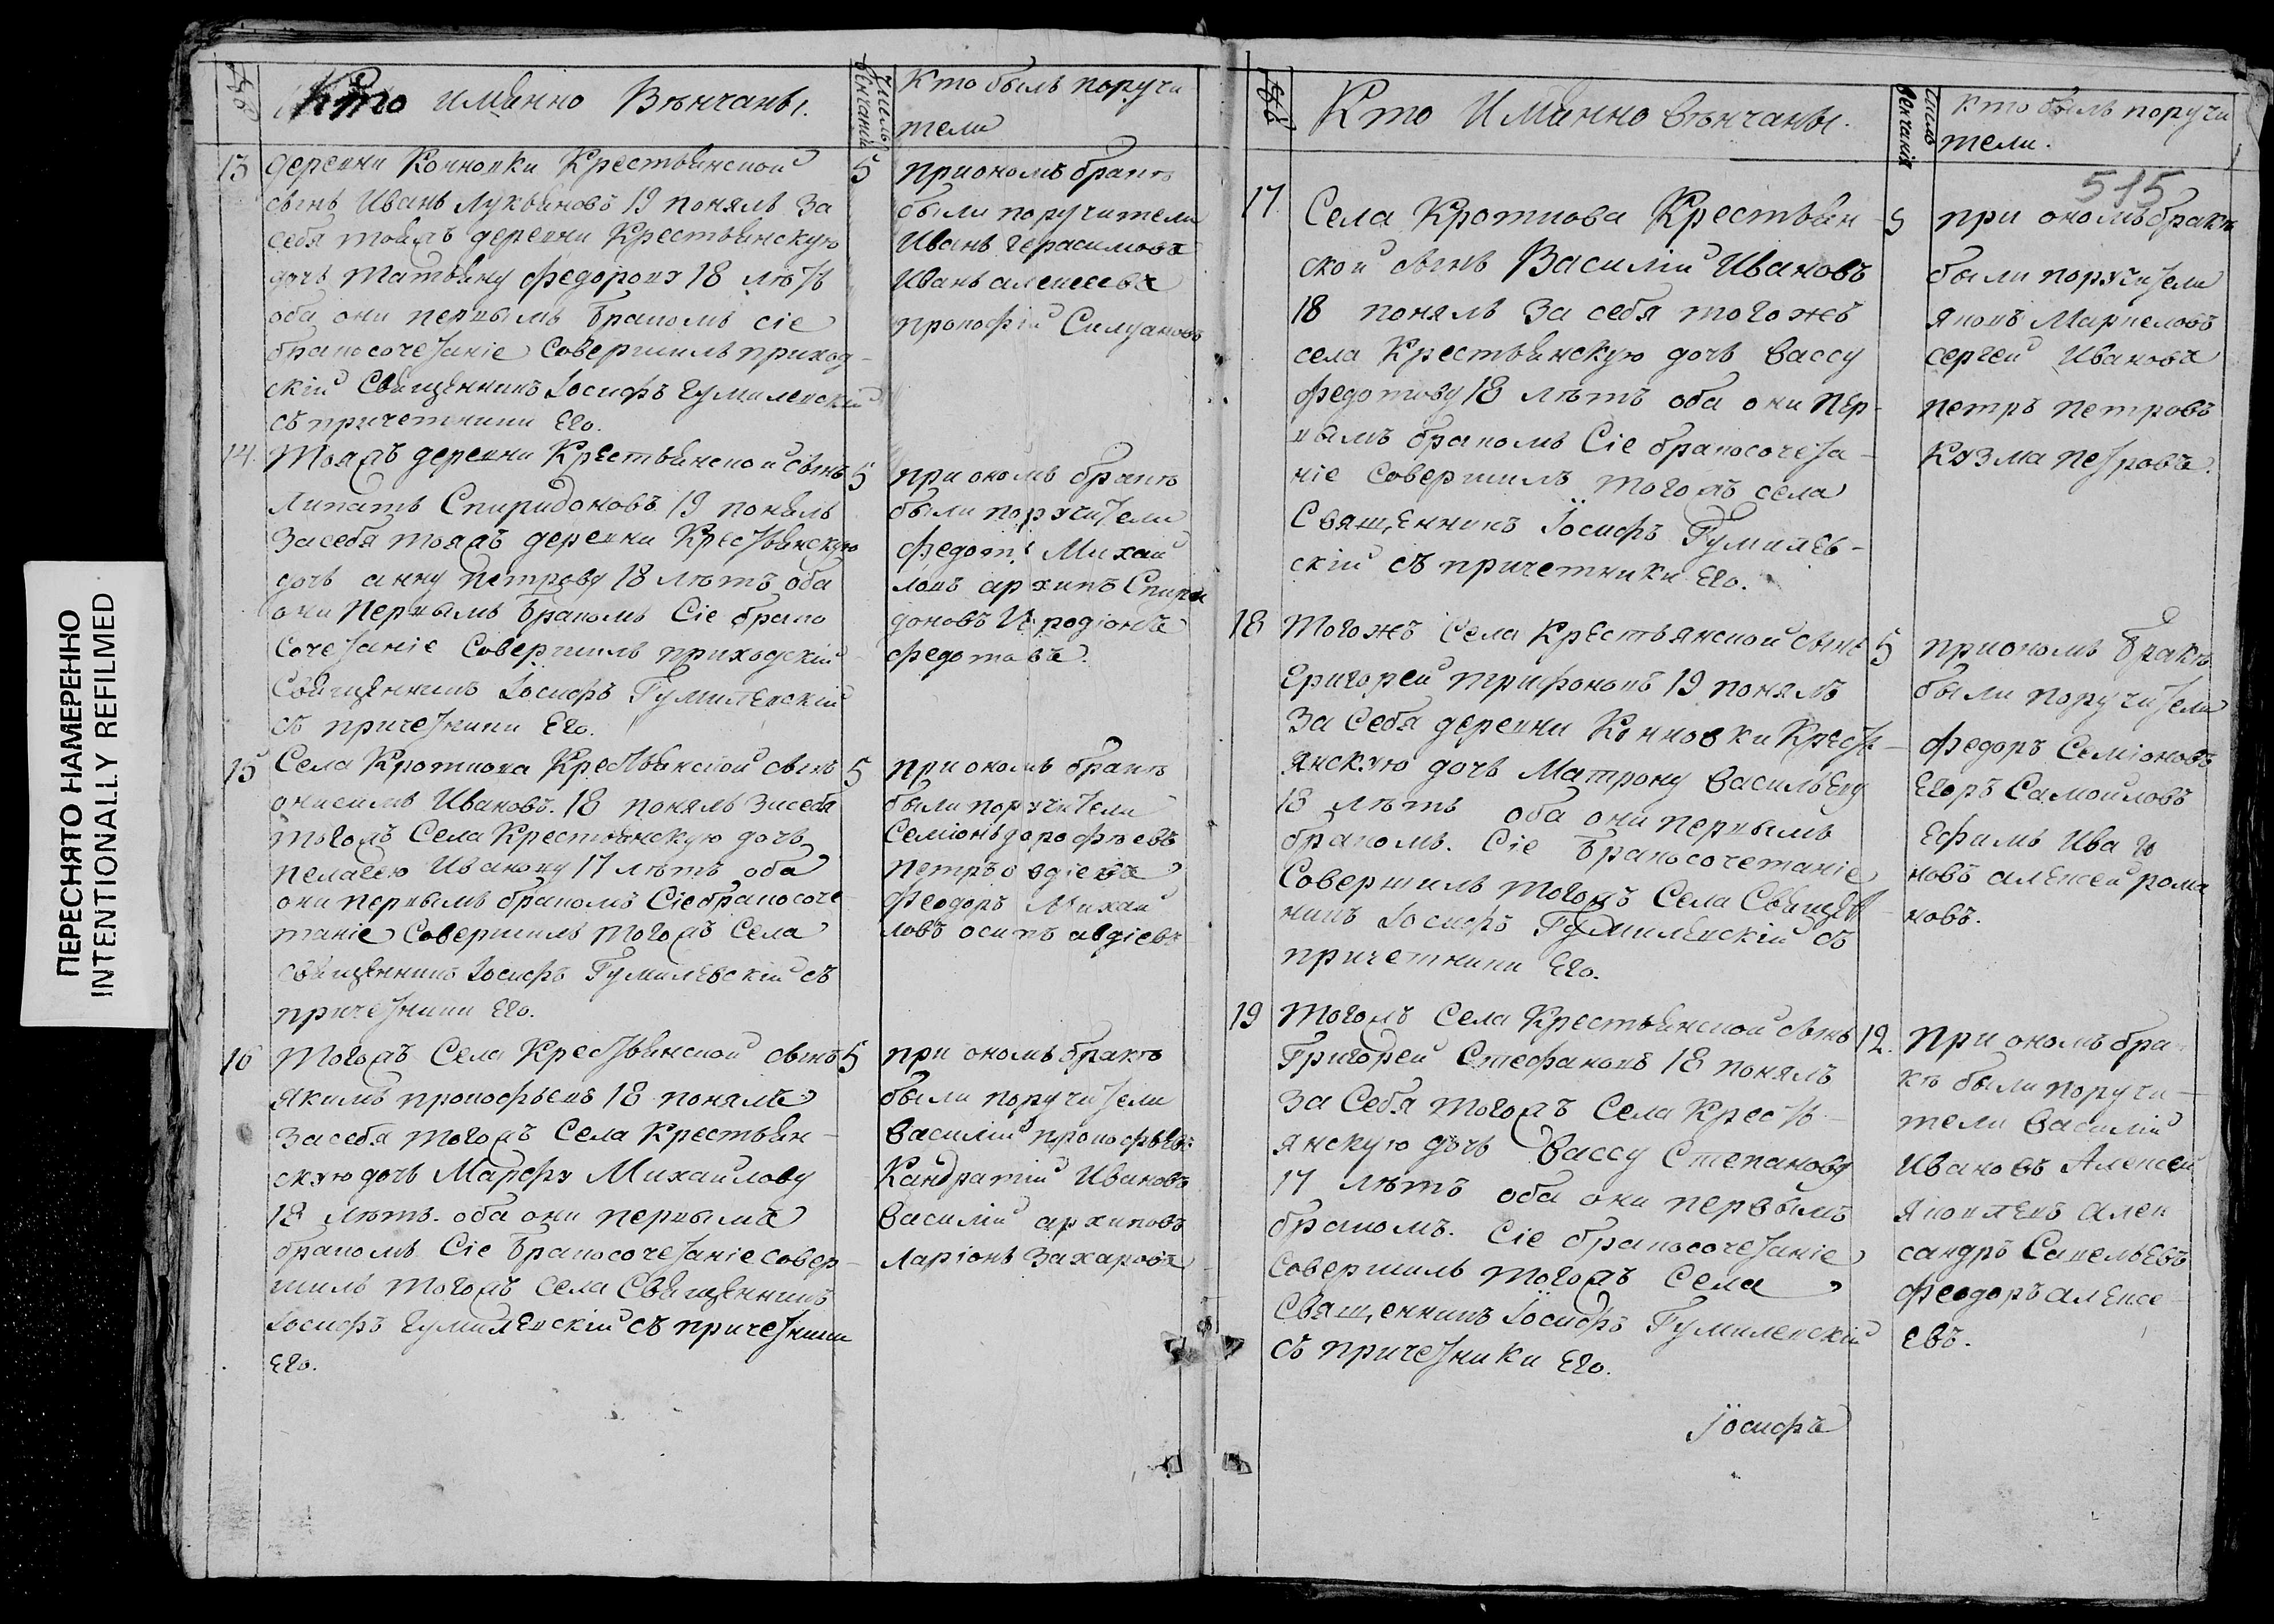 ПЕРЕСНЯТО НАМЕРЕННО
INTENTIONALLY REFILMED
Кто имянно Вѣнчаны.
Число венчанiя
Кто былъ поручи
тели
13
деревни Конновки Крестьянской
сынъ Иванъ Лукьяновъ 19 понялъ за
себя тояжъ деревни Крестьянскую
дочь Татьяну федорову 18 лѣтъ
оба они первымъ бракомъ сiе
бракосочетанiе Совершилъ приход-
скiй Священникъ Iосифъ Гумилевскiй
съ причетники Его.
5
при ономъ бракѣ
были поручители
Иванъ герасимовъ
Иванъ алексеевъ
прокофiй Силуановъ
14.
Тояжъ деревни Крестьянской сынъ
Липатъ Спиридоновъ 19 понялъ
за себя тояжъ деревни Крестьянскую
дочь анну петрову 18 лѣтъ оба
они первымъ бракомъ Сiе брако
сочетанiе Совершилъ приходскiй
Священникъ Iосифъ Гумилевскiй
съ причетники Его.
5
при ономъ бракѣ
были поручители
федотъ Михай
ловъ архипъ Спири
доновъ Иродiонъ
федотовъ.
15
Села Кроткова Крестьянской сынъ
онисимъ Ивановъ. 18 понялъ за себя
тогожъ Села Крестьянскую дочь
пелагею Иванову 17 лѣтъ оба
они первымъ бракомъ Сiе бракосоче
танiе Совершилъ тогожъ Села
священникъ Iосифъ Гумилевскiй съ
причетники Его.
5
при ономъ бракѣ
были поручители
Семiонъ дорофѣевъ
петръ овдiевъ
феодоръ Михай
ловъ осипъ авдiевъ
16
Тогожъ Села Крестьянской сынъ
якимъ прокофьевъ 18 понялъ
за себя тогожъ Села Крестьян-
скую дочь Марфу Михайлову
18 лѣтъ. оба они первымъ
бракомъ Сiе бракосочетанiе совер-
шилъ тогожъ села Священникъ
Iосифъ Гумилевскiй съ причетники
Его.
5
при ономъ бракѣ
были поручители
василiй прокофьевъ
Кандратiй Ивановъ
василiй архиповъ
Ларiонъ Захаровъ
Кто Имянно вѣнчаны.
Число венчанiя
Кто былъ поручи
тели.
515
17
Села Кроткова Крестьян-
ской сынъ Василiй Ивановъ
18 понялъ за себя тогожъ
села Крестьянскую дочь вассу
федотову 18 лѣтъ оба они пер-
вымъ бракомъ Сiе бракосочета-
нiе совершилъ тогожъ села
Священникъ Iосифъ Гумилев-
скiй съ причетники Его.
5
при ономъ бракѣ
были поручители
яковъ Маркеловъ
сергей Ивановъ
петръ петровъ
Козма петровъ.
18
Тогожъ Села Крестьянской сынъ
Григорей трифоновъ 19 понялъ
за Себя деревни Конновки Крестъ-
янскую дочь Матрону васильеву
18 лѣтъ оба они первымъ
бракомъ. Сiе бракосочетанiе
Совершилъ тогожъ Села Священ-
никъ Iосифъ Гумилевскiй съ
причетники Его.
5
при ономъ бракѣ
были поручители
федоръ Семiоновъ
Егоръ Самойловъ
Ефимъ Ива
новъ алексей рома
новъ.
19
Тогожъ Села Крестьянской сынъ
Григорей Стефановъ 18 понялъ
за Себя тогожъ Села Кресть-
янскую дочь вассу Степанову
17 лѣтъ оба они первымъ
бракомъ. Сiе бракосочетанiе
совершилъ тогожъ Села
Священникъ Iосифъ Гумилевскiй
съ причетники Его.
12.
при ономъ бра-
кѣ были поручи-
тели василiй
Ивановъ Алексей
яковлевъ алек
сандръ Савельевъ
феодоръ алексе
евъ.
Iосифъ